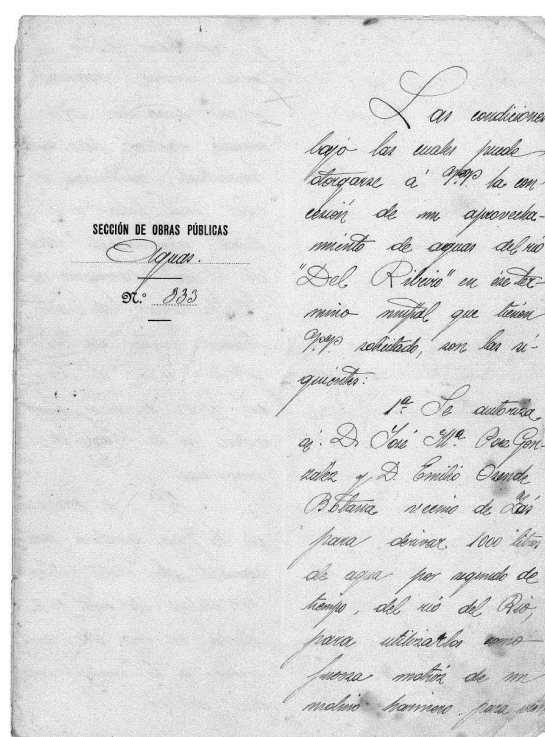 SECCIÓN DE OBRAS PÚBLICAS
Aguas.
N.º 233
Las condiciones
bajo las cuales puede
otorgarse á VV. la con-
cesión de un aprovecha-
miento de aguas del rio
"Del Ribeiro" en ese tér-
mino mupal que tienen
VV. solicitado, son las si-
guientes:
1ª. Se autoriza
á D. José Mª. Pose Gon-
zalez y D. Emilio
Botana vecino de Zás
para derivar 1000 litros
de agua por segundo de
tiempo, del rio del Rio,
para utilizarlos como
fuerza motriz de un
molino harinero para